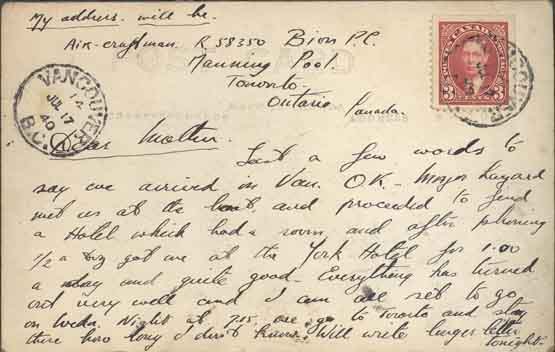 My address will be.
Air-craftman. R 58350 Bion P.C.
Manning Pool.
Toronto.
Ontario.
Canada.
CANADA
3 CENTS 3
VANCOUVER
14
JUL 17
40
B.C.
Dear Mother.
Just a few words to
say we arrived in Van. O.K. - Major
met us at the boat, and proceeded to find
a Hotel which had a room, and after phoning
1/2 a doz got one at the York Hotel for 1.00
a day and quite good - Everything has turned
out very well and I am all set to go
on Wedn. Night at 7.15. we go to Toronto and stay
there how long I don't know. Will write longer letter
tonight.